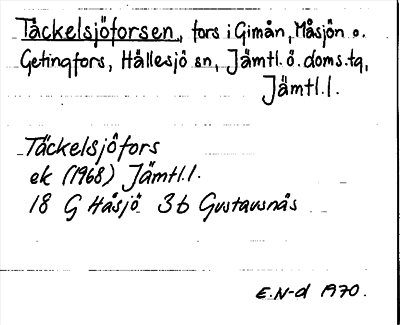 Täckelsjöforsen, fors i Gimån, Måsjön o.
Getingfors, Hällesjö sn, Jämtl. ö. doms.tg,
Jämtl. l.
Täckelsjöfors
ek (1968) Jämtl. l.
18 G Håsjö 3b Gustavsnäs
E.N-d 1970.